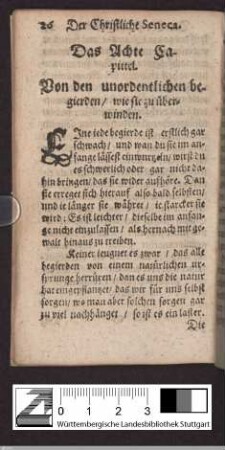 26 Der Christliche Seneca.
Das Achte Ca-
pittel.
Von den unordentlichen be-
gierden / wie sie zu über-
winden.
EIne iede begierde ist erstlich gar
schwach / und wan du sie im an-
fange lässest einwurzeln / wirst du
es schwerlich oder gar nicht da-
hin bringen / das sie wider aufhöre. Dan
sie erreget sich hierauf also bald selbsten /
und ie länger sie währet / ie starcker sie
wird: Es ist leichter / dieselbe im anfan-
ge nicht einzulassen / als hernach mit ge-
walt hinaus zu treiben.
Keiner leugnet es zwar / das alle
begierden von einem natürlichen ur-
sprunge herrüren / dan es uns die natur
hat eingepflanzet / das wir für uns selbst
sorgen / wo man aber solchen sorgen gar
zu viel nachhänget / so ist es ein laster.
Die
0 1 2 3 4 5
Württembergische Landesbibliothek Stuttgart